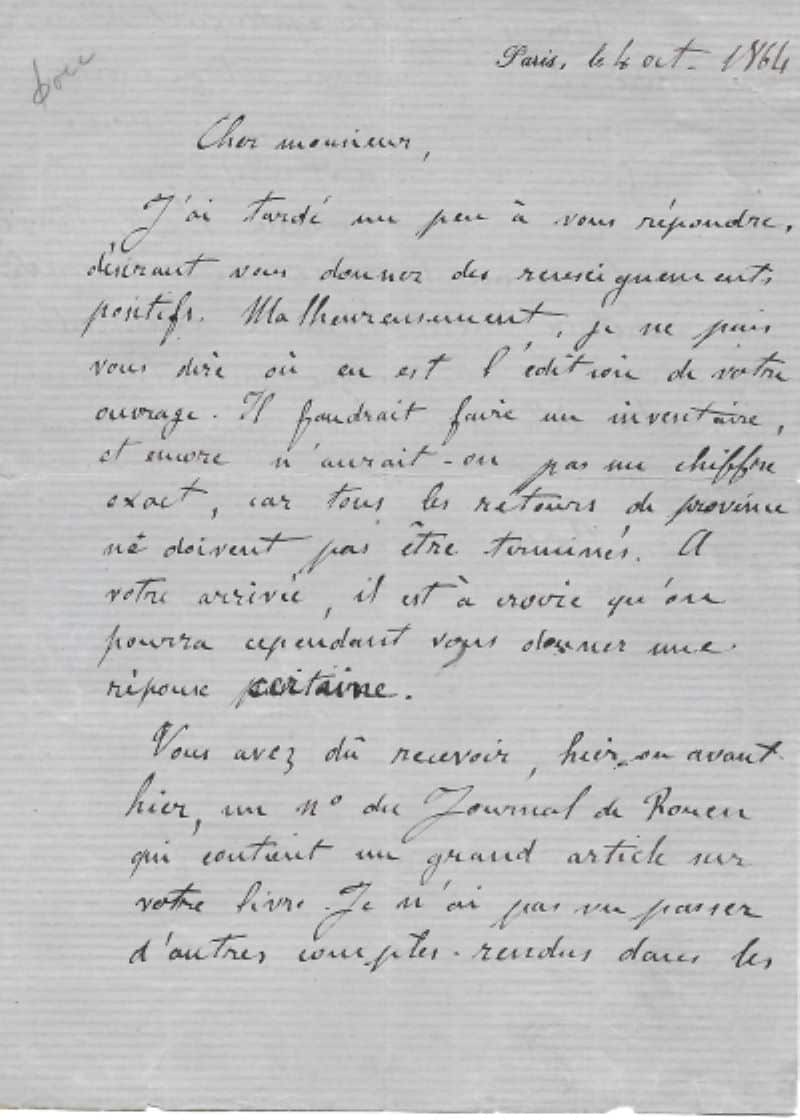 Paris, le 4 oct. 1864
Cher monsieur,
J'ai tardé un peu à vous répondre,
désirant vous donner des renseignements
positifs. Malheureusement, je ne puis
vous dire où en est l'édition de votre
ouvrage. Il faudrait faire un inventaire,
et encore n'aurait-on pas un chiffre
exact, car tous les retours de province
ne doivent pas être terminés. A
votre arrivée, il est à croire qu'on
pourra cependant vous donner une
réponse certaine.
Vous avez dû recevoir, hier ou avant
hier, un nº du Journal de Rouen
qui contient un grand article sur
votre livre. Je n'ai pas vu passer
d'autres comptes-rendus dans les